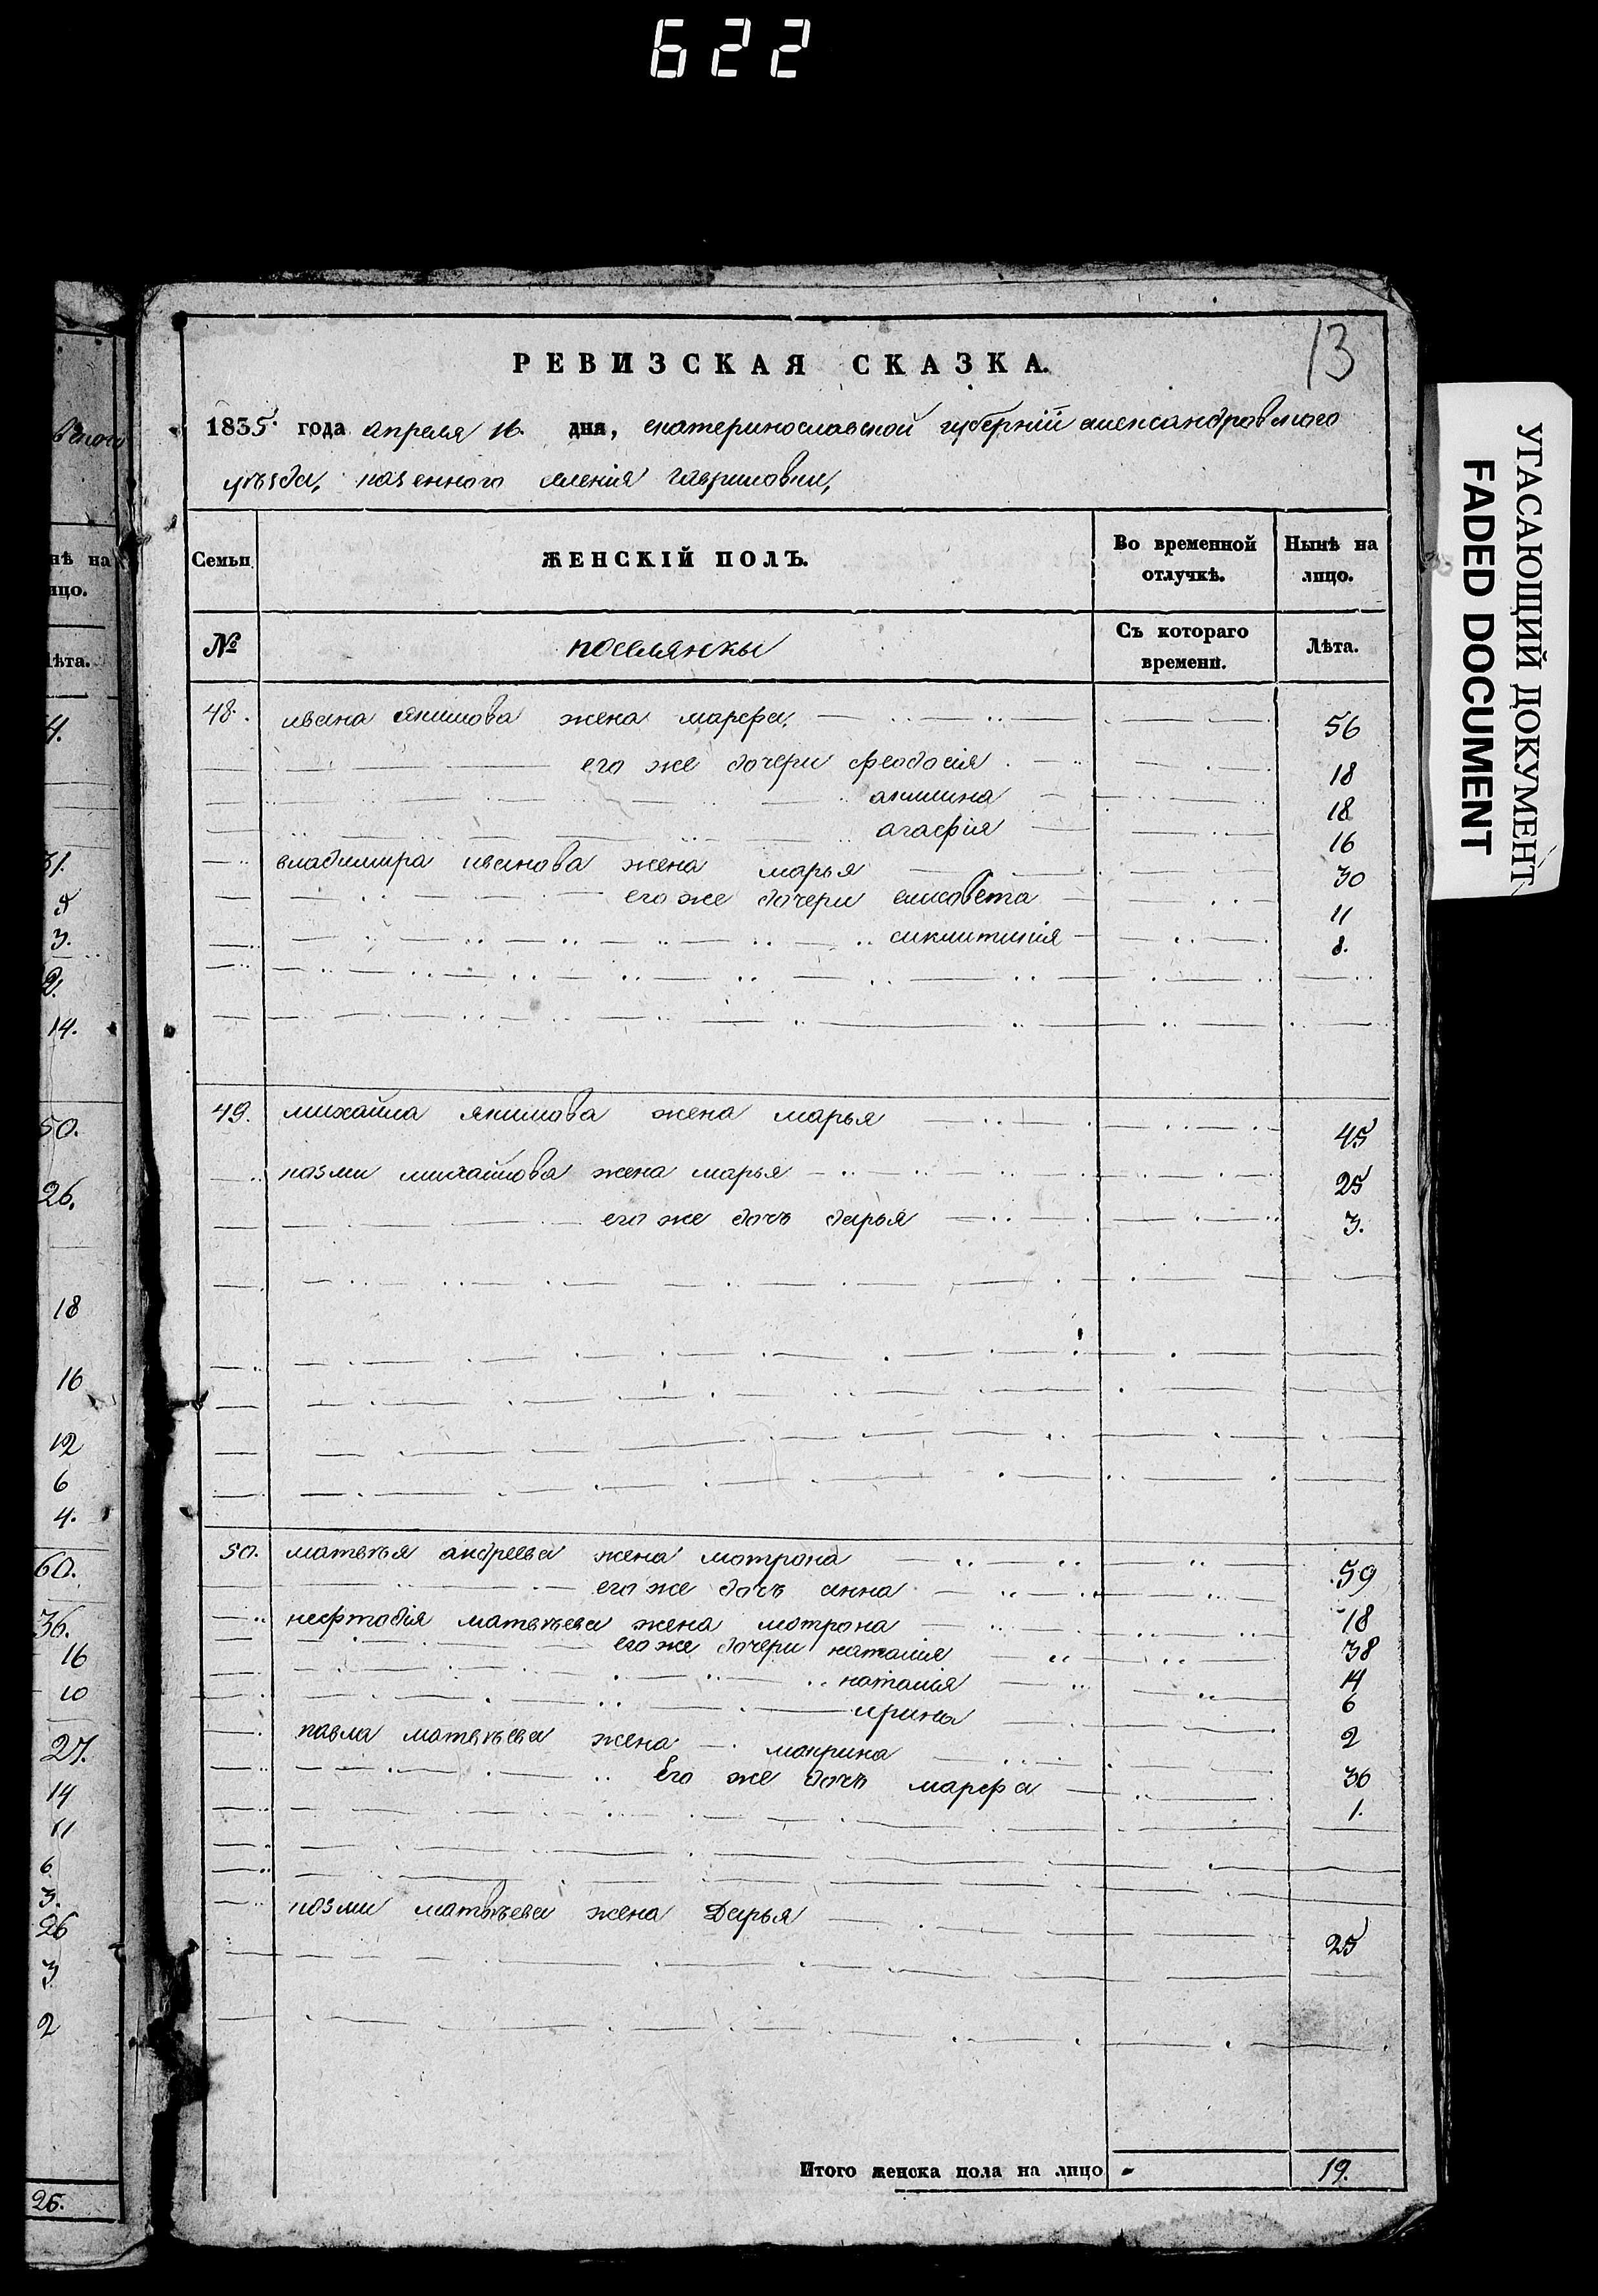 622
13
РЕВИЗСКАЯ СКАЗКА.
1835. года апреля 16. дня, екатеринославской губерніи александровского
уѣзда, казенного селенія гавриловки,
Семьи ЖЕНСКІЙ ПОЛЪ. Во временной отлучкѣ. Нынѣ на лицо.
№ поселянки Съ котораго времени. Лѣта.
48. ивана якимова жена марфа, 56
его же дочери феодосія 18
акилина 18
агафія 16
владимира иванова жена марья 30
его же дочери елисовета 11
сиклитикія 8.
49. михайла якимова жена марья 45
козми михайлова жена марья 25
его же дочь дарья 3.
50. матвѣя андреева жена мотрона 59
его же дочь анна 18
нефтодія матвѣева жена мотрона 38
его же дочери наталія 14
наталія 6
ирина 2
павла матвѣева жена макрина 36
его же дочь марфа 1.
козми матвѣева жена Дарья 25
Итого женска пола на лицо 19.
УГАСАЮЩИЙ ДОКУМЕНТ
FADED DOCUMENT
нѣ на
лѣта.
4.
31.
3.
2.
14.
50.
26.
18
16
12
6
4.
60.
36.
16
10
27.
14
11
6
3.
26
3
2
26.